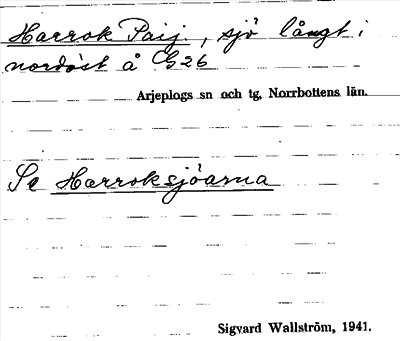 Harrok Paij., sjö långt i
nordöst å G26
Arjeplogs sn och tg, Norrbottens län.
Se Harroksjöarna
Sigvard Wallström, 1941.